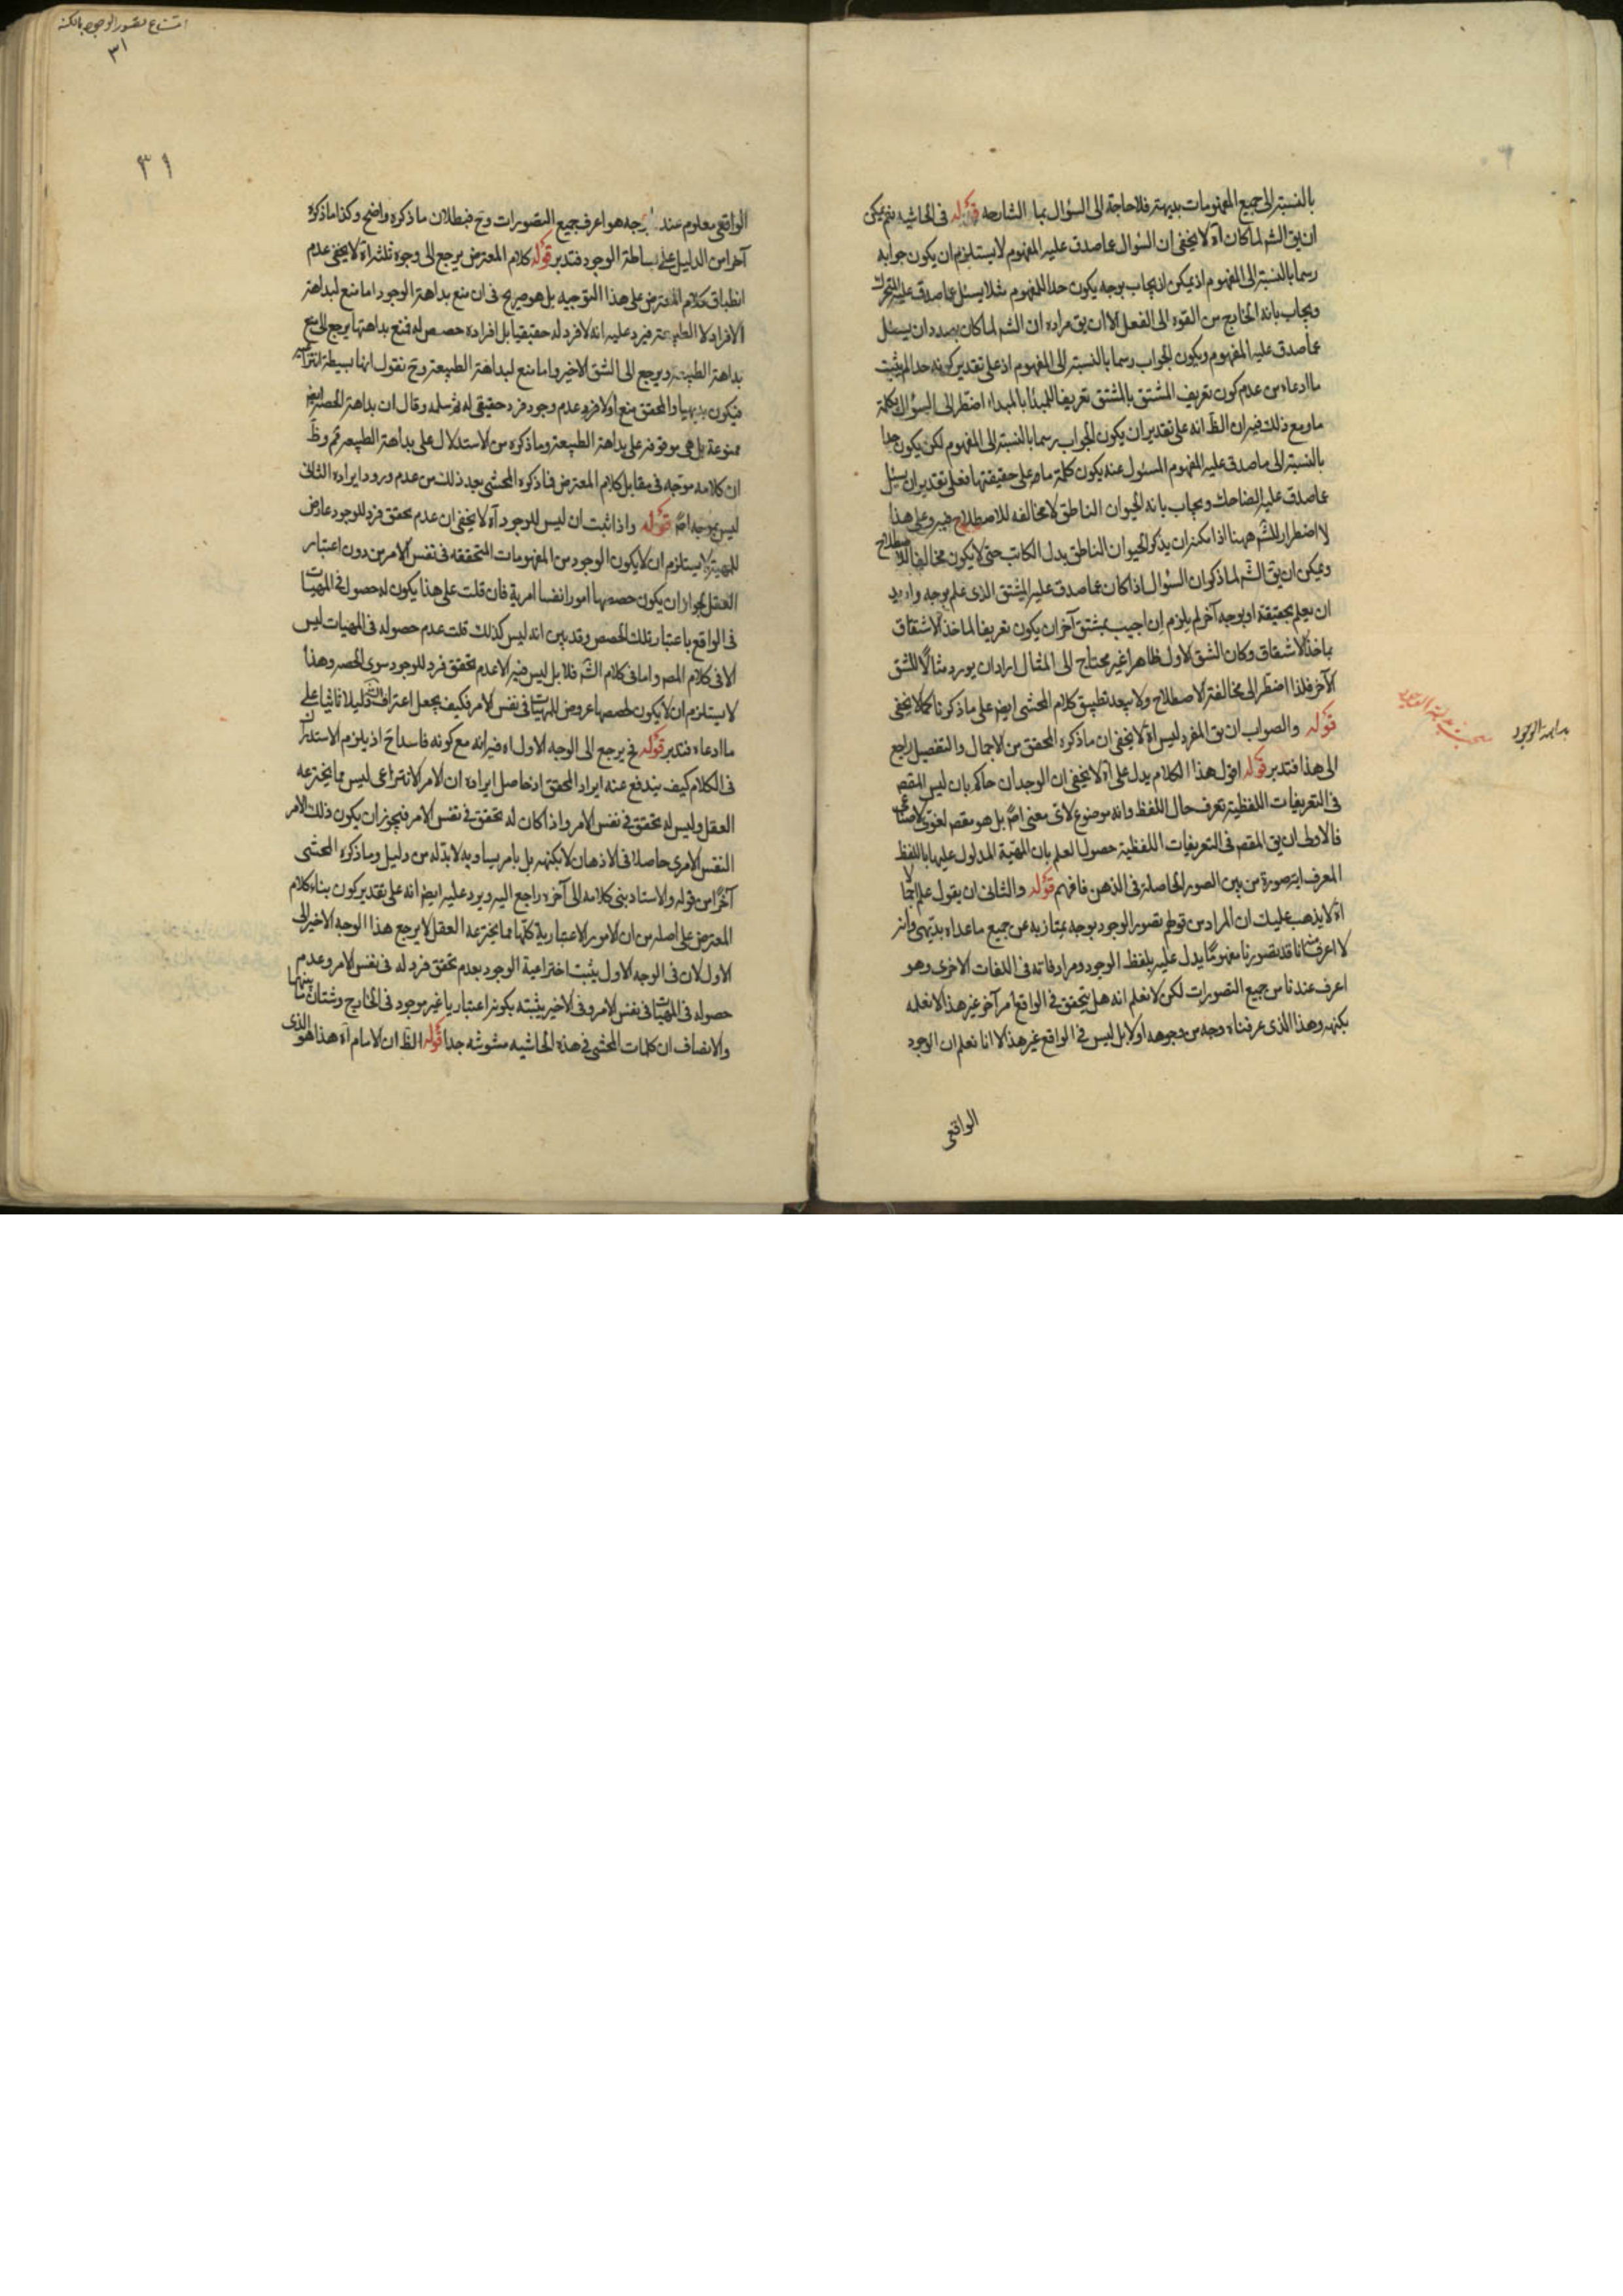 بالنسبة الى جميع المفهومات بديهة فلا حاجة الى السؤال بما الشارحه قوله فى الحاشيه نعم يمكن
ان يق الشه لما كان آه لا يخفى ان السؤال عما صدق عليه المفهوم لا يستلزم ان يكون جوابه
رسما بالنسبة الى المفهوم اذ يمكن ان يجاب بوجه يكون حدا للمفهوم مثلا يسئل عما صدق عليه المتحرك
ويجاب بانه الخارج من القوه الى الفعل الا ان يق مراده ان الشه لما كان بصدد ان يسئل
عما صدق عليه المفهوم ويكون الجواب رسما بالنسبة الى المفهوم اذ على تقدير كونه حدا لم يثبت
ما ادعاه من عدم كون تعريف المشتق بالمشتق تعريفا للمبدأ بالمبداء اضطر الى السؤال بكلمة
ما ومع ذلك فيه ان الظ انه على تقدير ان يكون الجواب رسما بالنسبة الى المفهوم لكن يكون حدا
بالنسبة الى ما صدق عليه المفهوم المسئول عنه يكون كلمة ما على حقيقتها فعلى تقدير ان يسئل
عما صدق عليه الضاحك ويجاب بانه الحيوان الناطق لا مخالفه للاصطلاح فيه وعلى هذا
لا اضطرار للشه ههنا اذا مكنه ان يذكر الحيوان الناطق بدل الكاتب حتى لا يكون مخالفا للاصطلاح
ويمكن ان يق الشه لما ذكر ان السؤال اذا كان عما صدق عليه المشتق الذى علم بوجه واريد
ان يعلم بحقيقة او بوجه آخر لم يلزم ان اجيب بمشتق آخر ان يكون تعريفا لماخذ الاشتقاق
بماخذ الاشتقاق وكان الشق الاول ظاهرا غير محتاج الى المثال اراد ان يورد مثالا للشق
الآخر فلذا اضطر الى مخالفة الاصطلاح ولا يبعد تطبيق كلام المحشى ايض على ما ذكرنا كما لا يخفى
قوله والصواب ان يق المفرد ليس آه لا يخفى ان ما ذكره المحقق من الاجمال والتفصيل راجع
الى هذا فتدبر قوله اقول هذا الكلام يدل على آه لا يخفى ان الوجدان حاكم بان ليس المقصم
فى التعريفات اللفظية تعرف حال اللفظ وانه موضوع لاى معنى اصلا بل هو مقصد لغوى لا صناعى
فالاولى ان يق المقصم فى التعريفات اللفظية حصول العلم بان المهية المدلول عليها باللفظ
المعرف اية صورة من بين الصور الحاصلة فى الذهن فافهم قوله والثانى ان يقول علم انها لا
آه لا يذهب عليك ان المراد من قولهم تصور الوجود بوجه يمتاز به عن جميع ما عداه بديهى وانه
لا اعرف منه انا قد تصورنا مفهوما يدل عليه بلفظ الوجود ومرادفاته فى اللغات الاخرى وهو
اعرف عندنا من جميع التصورات لكن لا نعلم انه هل يتحقق فى الواقع امر آخر غير هذا لا نعلمه
بكنهه وهذا الذى عرفناه وجه من وجوهه اولا بل ليس فى الواقع غير هذا الا انا نعلم ان الوجود
الواقعى
بداهة الوجود
امتناع تصور الوجود بالكنه
٣١
٣١
الواقعى معلوم عندنا بوجه هو اعرف جميع التصورات وح فبطلان ما ذكره واضح وكذا ما ذكره
آخرا من الدليل على بساطة الوجود فتدبر قوله كلام المعترض يرجع الى وجوه ثلثة آه لا يخفى عدم
انطباق كلام المعترض على هذا التوجيه بل هو صريح فى ان منع بداهة الوجود اما منع لبداهة
الافراد لا الطبيعة فيرد عليه انه لا فرد له حقيقيا بل افراده حصص له فمنع بداهتها يرجع الى منع
بداهة الطبيعة ويرجع الى الشق الاخير واما منع لبداهة الطبيعة وح نقول انها بسيطة انتزاعية
فيكون بديهيا والمحقق منع اولا فرد عدم وجود فرد حقيقى له ثم سلمه وقال ان بداهة الحصة ايض
ممنوعة بل هى موقوفة على بداهة الطبيعة وما ذكره من الاستدلال على بداهة الطبيعة ثم وظ
ان كلامه موجه فى مقابل كلام المعترض فما ذكره المحشى بعد ذلك من عدم ورود ايراده الثانى
ليس بموجه اصلا قوله واذا ثبت ان ليس للوجود آه لا يخفى ان عدم تحقق فرد للوجود عارض
للمهية لا يستلزم ان لا يكون الوجود من المفهومات المتحققه فى نفس الامر من دون اعتبار
العقل لجواز ان يكون حصصها امورا نفسا امرية فان قلت على هذا يكون له حصول فى المهيات
فى الواقع باعتبار تلك الحصص وقد بين انه ليس كذلك قلت عدم حصوله فى المهيات ليس
الا فى كلام المصم واما فى كلام الشه فلا بل ليس فيه الا عدم تحقق فرد للوجود سوى الحصه وهذا
لا يستلزم ان لا يكون لحصصها عروض للمهيات فى نفس الامر فكيف يجعل اعتراف الشه دليلا ثانيا على
ما ادعاه فتدبر قوله فح يرجع الى الوجه الاول آه فيه انه مع كونه فاسدا ح اذ يلزم الاستدراك
فى الكلام كيف يندفع عنه ايراد المحقق اذ حاصل ايراده ان الامر الانتزاعى ليس مما يخترعه
العقل وليس له تحقق فى نفس الامر واذا كان له تحقق فى نفس الامر فيجوز ان يكون ذلك الامر
النفس الامرى حاصلا فى الاذهان لا بكنهه بل بامر يساويه لا بد له من دليل وما ذكره المحشى
آخرا من قوله والاستاد بنى كلامه الى آخره راجع اليه ويرد عليه ايض انه على تقدير كون بناء كلام
المعترض على اصله من ان الامور الاعتبارية كلها مما يخترعه العقل لا يرجع هذا الوجه الاخير الى
الاول لان فى الوجه الاول يثبت اختراعية الوجود بعدم تحقق فرد له فى نفس الامر وعدم
حصوله فى المهيات فى نفس الامر وفى الاخير يثبته بكونه اعتباريا غير موجود فى الخارج وشتان ما بينهما
والانصاف ان كلمات المحشى فى هذه الحاشيه مشوشه جدا قوله الظ ان الامام آه هذا هو الذى